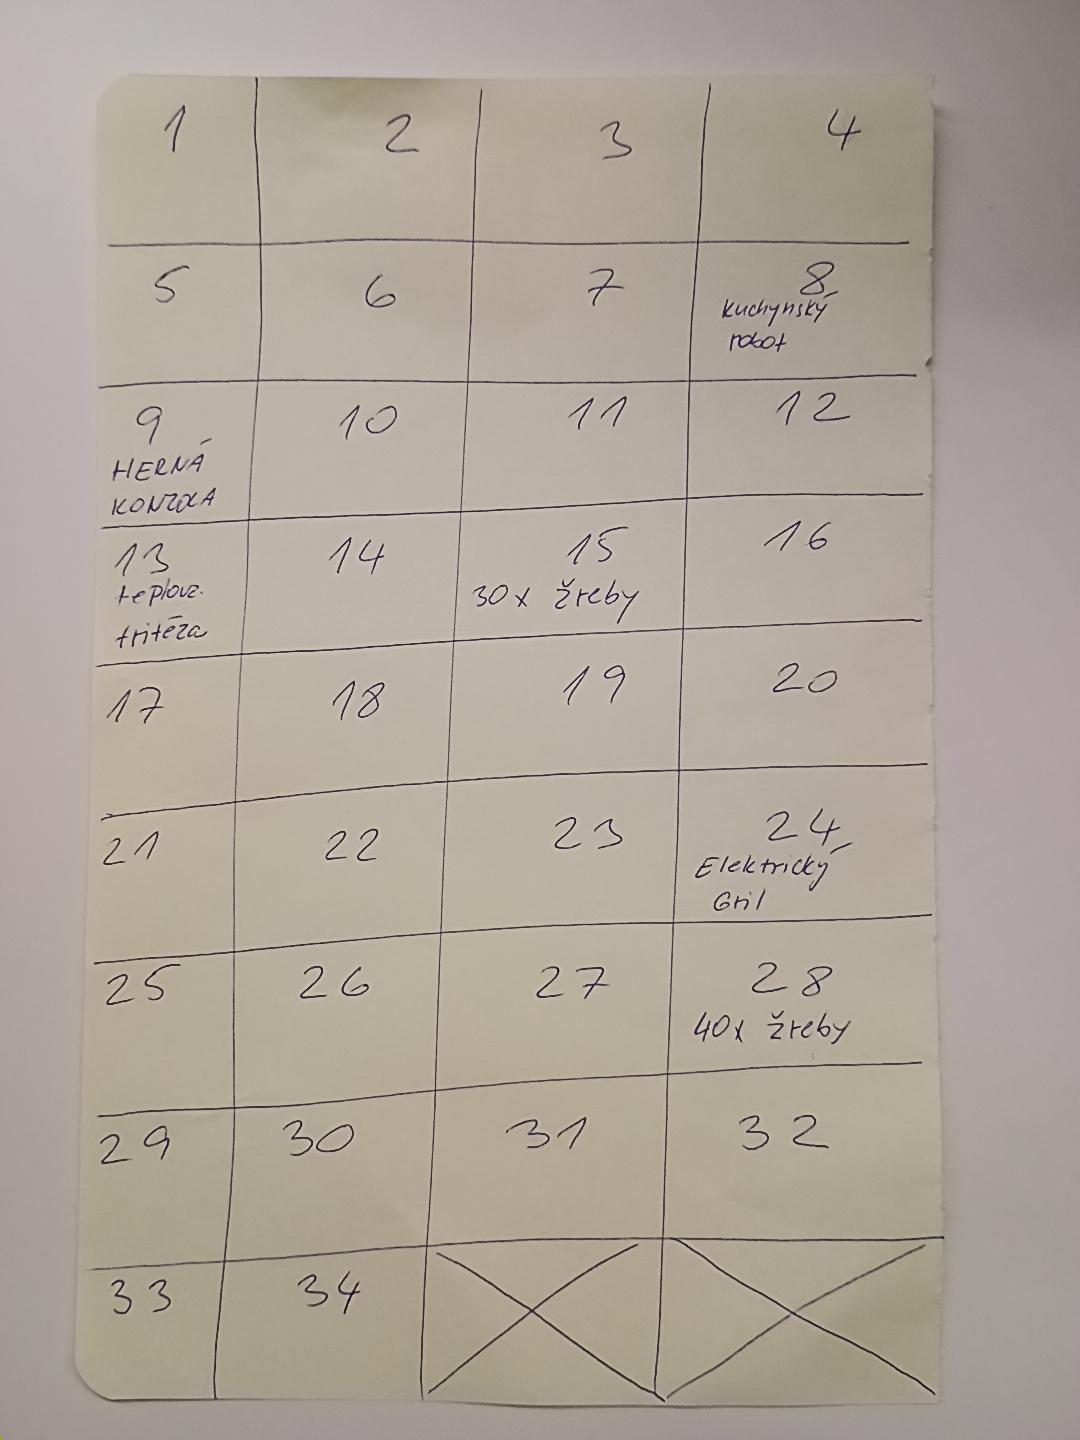 1 2 3 4
5 6 7 8
Kuchynský
robot
9 10 11 12
HERNÁ
KONZOLA
13 14 15 16
teplovz.
30x žreby
fritéza
17 18 19 20
21 22 23 24
Elektrický
Gril
25 26 27 28
40x žreby
29 30 31 32
33 34